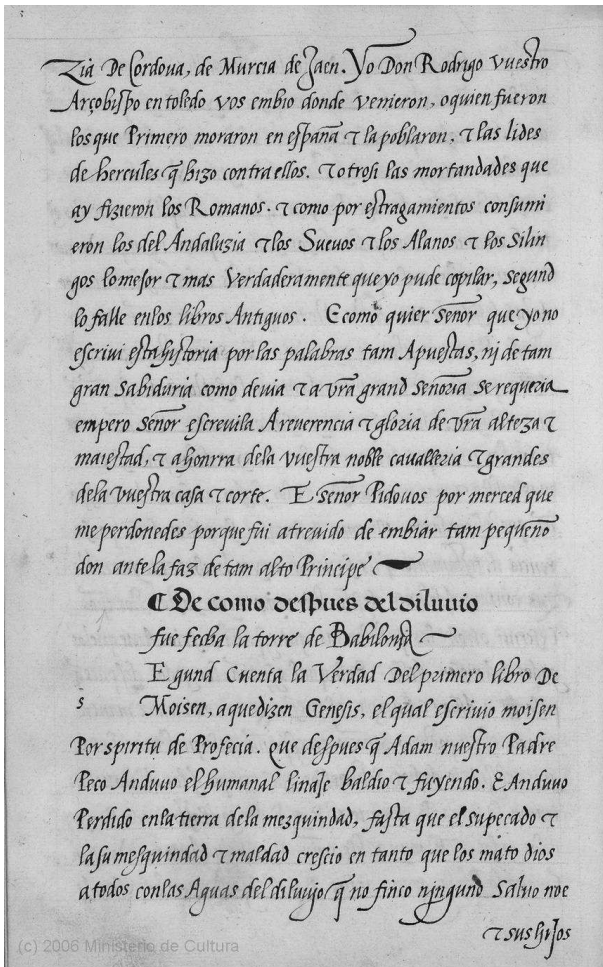 5
zia De Cordoua, de Murcia de Jaen. Yo Don Rodrigo vuestro
Arçobispo en toledo vos embio donde venieron, o quien fueron
los que Primero moraron en españa τ la poblaron, τ las lides
de hercules q̃ hizo contra ellos. τ otrosi las mortandades que
ay fizieron los Romanos. τ como por estragamientos consumi
eron los del Andaluzia τ los Sueuos τ los Alanos τ los Silin
gos lo mejor τ mas Verdaderamente que yo pude copilar, segund
lo falle en los libros Antiguos. E como quier señor que yo no
escriui esta historia por las palabras tam Apuestas, nj de tam
gran sabiduria como deuia τ a vr̃a grand señoria se requeria
empero señor escreuila A reuerencia τ gloria de vr̃a alteza τ
maiestad, τ a honrra dela vuestra noble caualleria τ grandes
dela vuestra casa τ corte. E señor Pidouos por merced que
me perdonedes porque fui atreuido de embiar tam pequeño
don ante la faz de tam alto Principe
¶ De como despues del diluuio
fue fecha la torre de Babilonja
s
Egund Cuenta la Verdad Del primero libro De
Moisen, a que dizen Genesis, el qual escriuio moisen
Por spiritu de Profecia. que despues q̃ Adam nuestro Padre
Peco Anduuo el humanal linaje baldio τ fuyendo. E Anduuo
Perdido en la tierra de la mezquindad, fasta que el su pecado τ
la su mesquindad τ maldad crescio en tanto que los mato dios
a todos con las Aguas del diluujo q̃ no finco njngund saluo noe
τ sus hijos
(c) 2006 Ministerio de Cultura